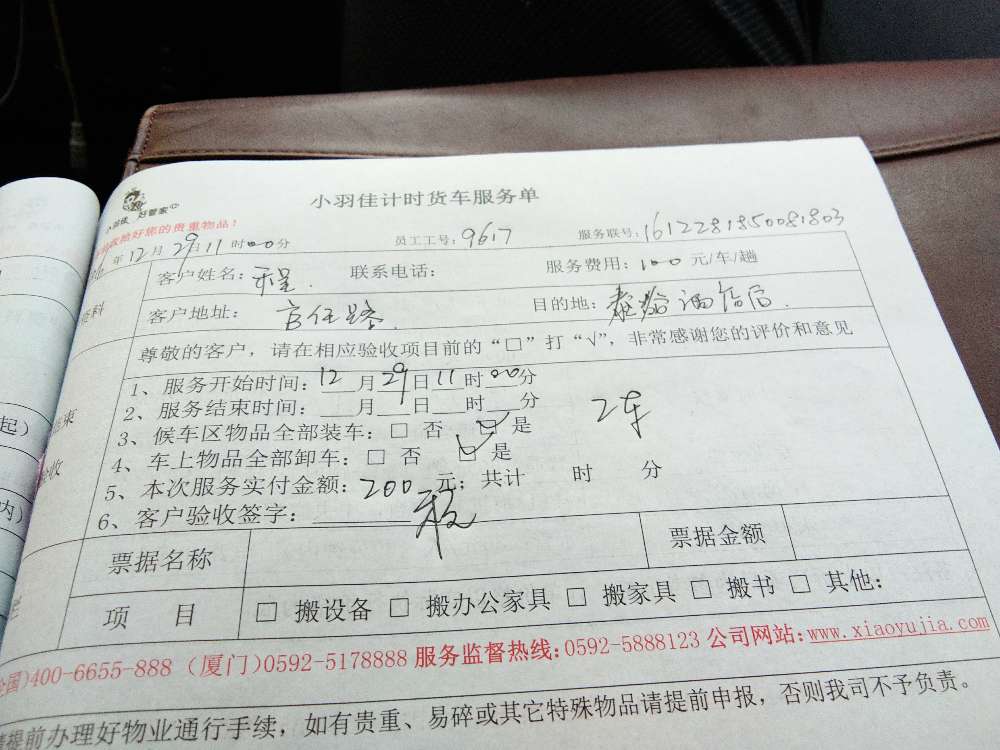 小羽佳计时货车服务单
小羽佳 好管家
好您的贵重物品!
年12月29日11时00分 员工工号:9617 服务联号:1612281850081803
客户姓名: 联系电话: 服务费用:100元/车/趟
客户地址:官任路 目的地:
尊敬的客户,请在相应验收项目前的“□”打“√”,非常感谢您的评价和意见
1、服务开始时间:12月29日11时00分
2、服务结束时间:___月___日___时___分
3、候车区物品全部装车:□ 否 ☑ 是
2车
4、车上物品全部卸车:□ 否 ☑ 是
5、本次服务实付金额:200元;共计 时 分
6、客户验收签字:
票据名称 票据金额
项 目 □ 搬设备 □ 搬办公家具 □ 搬家具 □ 搬书 □ 其他:
国)400-6655-888 (厦门)0592-5178888 服务监督热线:0592-5888123 公司网站:www.xiaoyujia.com
提前办理好物业通行手续,如有贵重、易碎或其它特殊物品请提前申报,否则我司不予负责。
料
束
验收
起)
内)